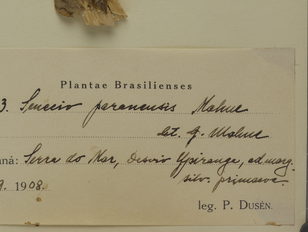 Plantae Brasilienses
3. Senecio paranensis Malme
det. G. Malme
ná: Serra do Mar, Desvio Ypiranga, ad marg.
silv. primaev.
9. 1908.
leg. P. DUSÉN.